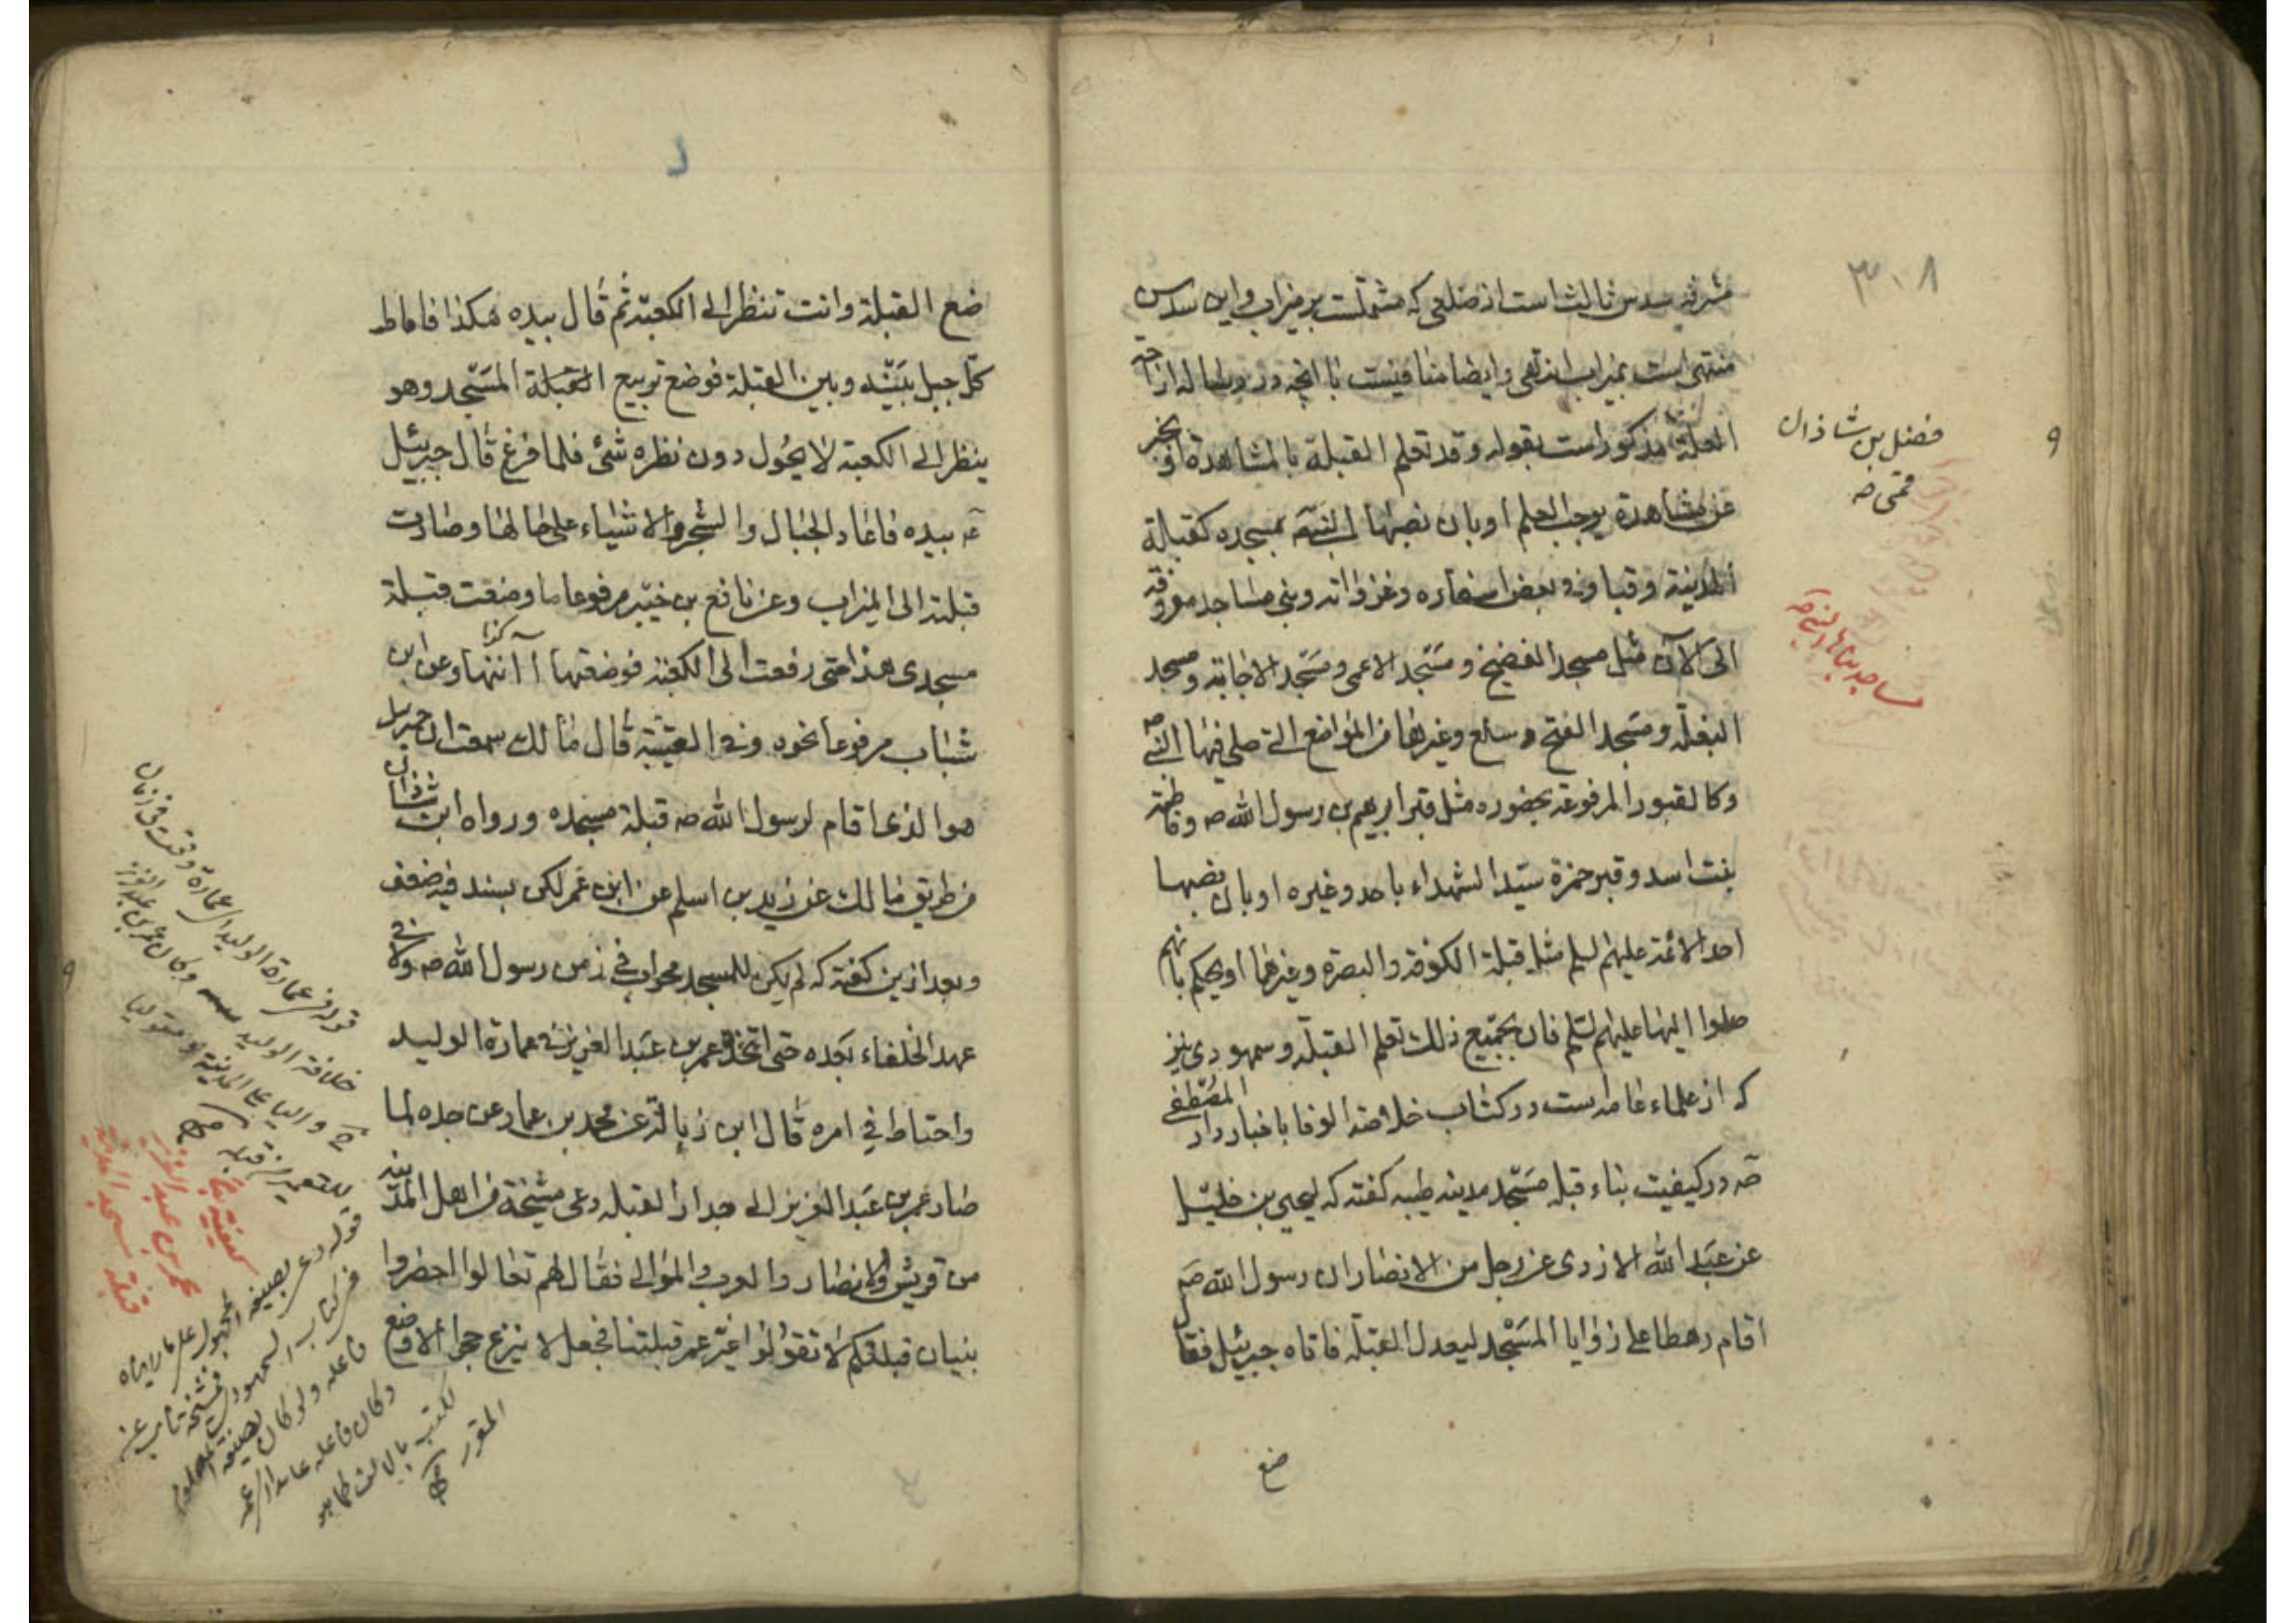 ٣٠٨
مشرقه سدس ثالث است از ضلعی که مشتملست بر میزاب و این سدس
منتهی است بمیزاب انتهی و ایضا منافیست با انچه در رساله ازاحة
العلة مذکور است بقوله و قد تعلم القبلة بالمشاهدة او بخبر
عن مشاهدة یوجب العلم او بان نصبها النبی صه بمسجده کقبلة
المدینة و قبا و فی بعض اسفاره و غزواته و بنی مساجد معروفة
الی الآن مثل مسجد الفضیخ و مسجد الاعمی و مسجد الاجابة و مسجد
البغلة و مسجد الفتح و سلع و غیرها من المواضع التی صلی فیها النبی صه
و کالقبور المرفوعة بحضوره مثل قبر ابرهیم بن رسول الله صه و فاطمة
بنت اسد و قبر حمزة سید الشهداء باحد و غیره او بان نصبها
احد الائمة علیهم السلم مثل قبلة الکوفة و البصرة و غیرها او یحکم بانهم
صلوا الیها علیهم السلم فان بجمیع ذلك تعلم القبلة و سمهودی نیز
که از علماء عامه است در کتاب خلاصة الوفا باخبار دار المصطفی
صه در کیفیت بناء قبله مسجد مدینه طیبه گفته که لیحیی بن
عن عبد الله الازدی عن رجل من الانصار ان رسول الله صه
اقام رهطا علی زوایا المسجد لیعدل القبلة فاتاه جبرئیل فقال
ضع
فضل بن شاذان
قمی ره
مساجد بناها النبی صه
ضع القبلة و انت تنظر الی الکعبة ثم قال بیده هکذا فاماط
کل جبل بینه و بین القبلة فوضع تربیع القبلة المسجد و هو
ینظر الی الکعبة لا یحول دون نظره شئ فلما فرغ قال جبرئیل
عه بیده فاعاد الجبال و الشجر و الاشیاء علی حالها و صارت
قبلته الی المیزاب و عن نافع بن جبیر مرفوعا ما وضعت قبلة
مسجدی هذا حتی رفعت الی الکعبة فوضعتها و عن ابن
شهاب مرفوعا نحوه و فی العتبیة قال مالك سمعت ان جبریل
هو الذی اقام لرسول الله صه قبلة مسجده و رواه ابن شاذان
من طریق مالك عن زید بن اسلم عن ابن عمر لکن بسند فیه ضعف
و بعد ازین گفته که لم یکن للمسجد محراب فی زمن رسول الله صه و لا فی
عهد الخلفاء بعده حتی اتخذه عمر بن عبد العزیز فی عمارة الولید
و احتاط فی امره قال ابن زبالة عن محمد بن عمار عن جده لما
صار عمر بن عبد العزیز الی جدار القبله دعی مشیخة من اهل المدینة
من قریش و الانصار و العرب و الموالی فقال لهم تعالوا احضروا
بنیان قبلتکم لا تقولوا غیر عمر قبلتنا فجعل لا ینزع حجرا الا وضع
قوله فی عمارة الولید
خلافة الولید و کان عمر بن عبد العزیز
والیا علی المدینة
قوله دعی بصیغه المجهول علی ما رایناه
فی کتاب السمهودی فمشیخة نایب عن
فاعله و لو کان بصیغه المعلوم
و کان فاعله عائدا الی عمر
لکتب بالالف
کیفیة
عمر بن عبد العزیز
قبلة مسجد المدینة